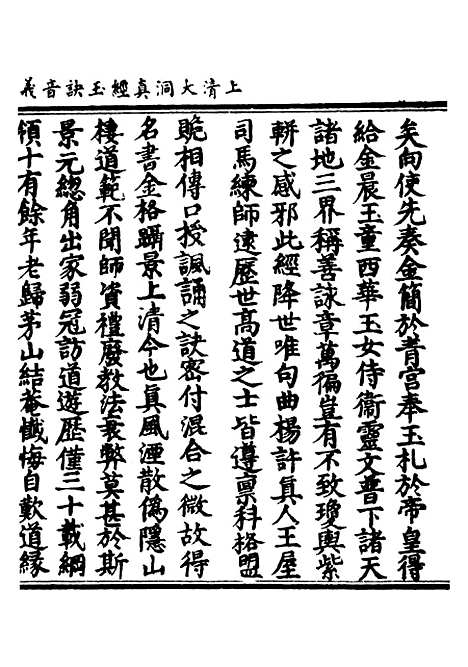 上清大洞真經玉訣音義
矣向使先奏金簡於青宮奉玉札於帝皇得
給金晨玉童西華玉女侍衞靈文普下諸天
諸地三界稱善詠章萬徧豈有不致瓊輿紫
軿之感邪此經降世唯句曲楊許真人王屋
司馬練師逮歷世高道之士皆遵禀科格盟
跪相傳口授諷誦之訣密付混合之微故得
名書金格躡景上清今也真風湮散偽隱山
樓道範不聞師資禮廢教法衰弊莫甚於斯
景元總角出家弱冠訪道遊歷僅三十載綱
領十有餘年老歸茅山結菴懺悔自歎道緣